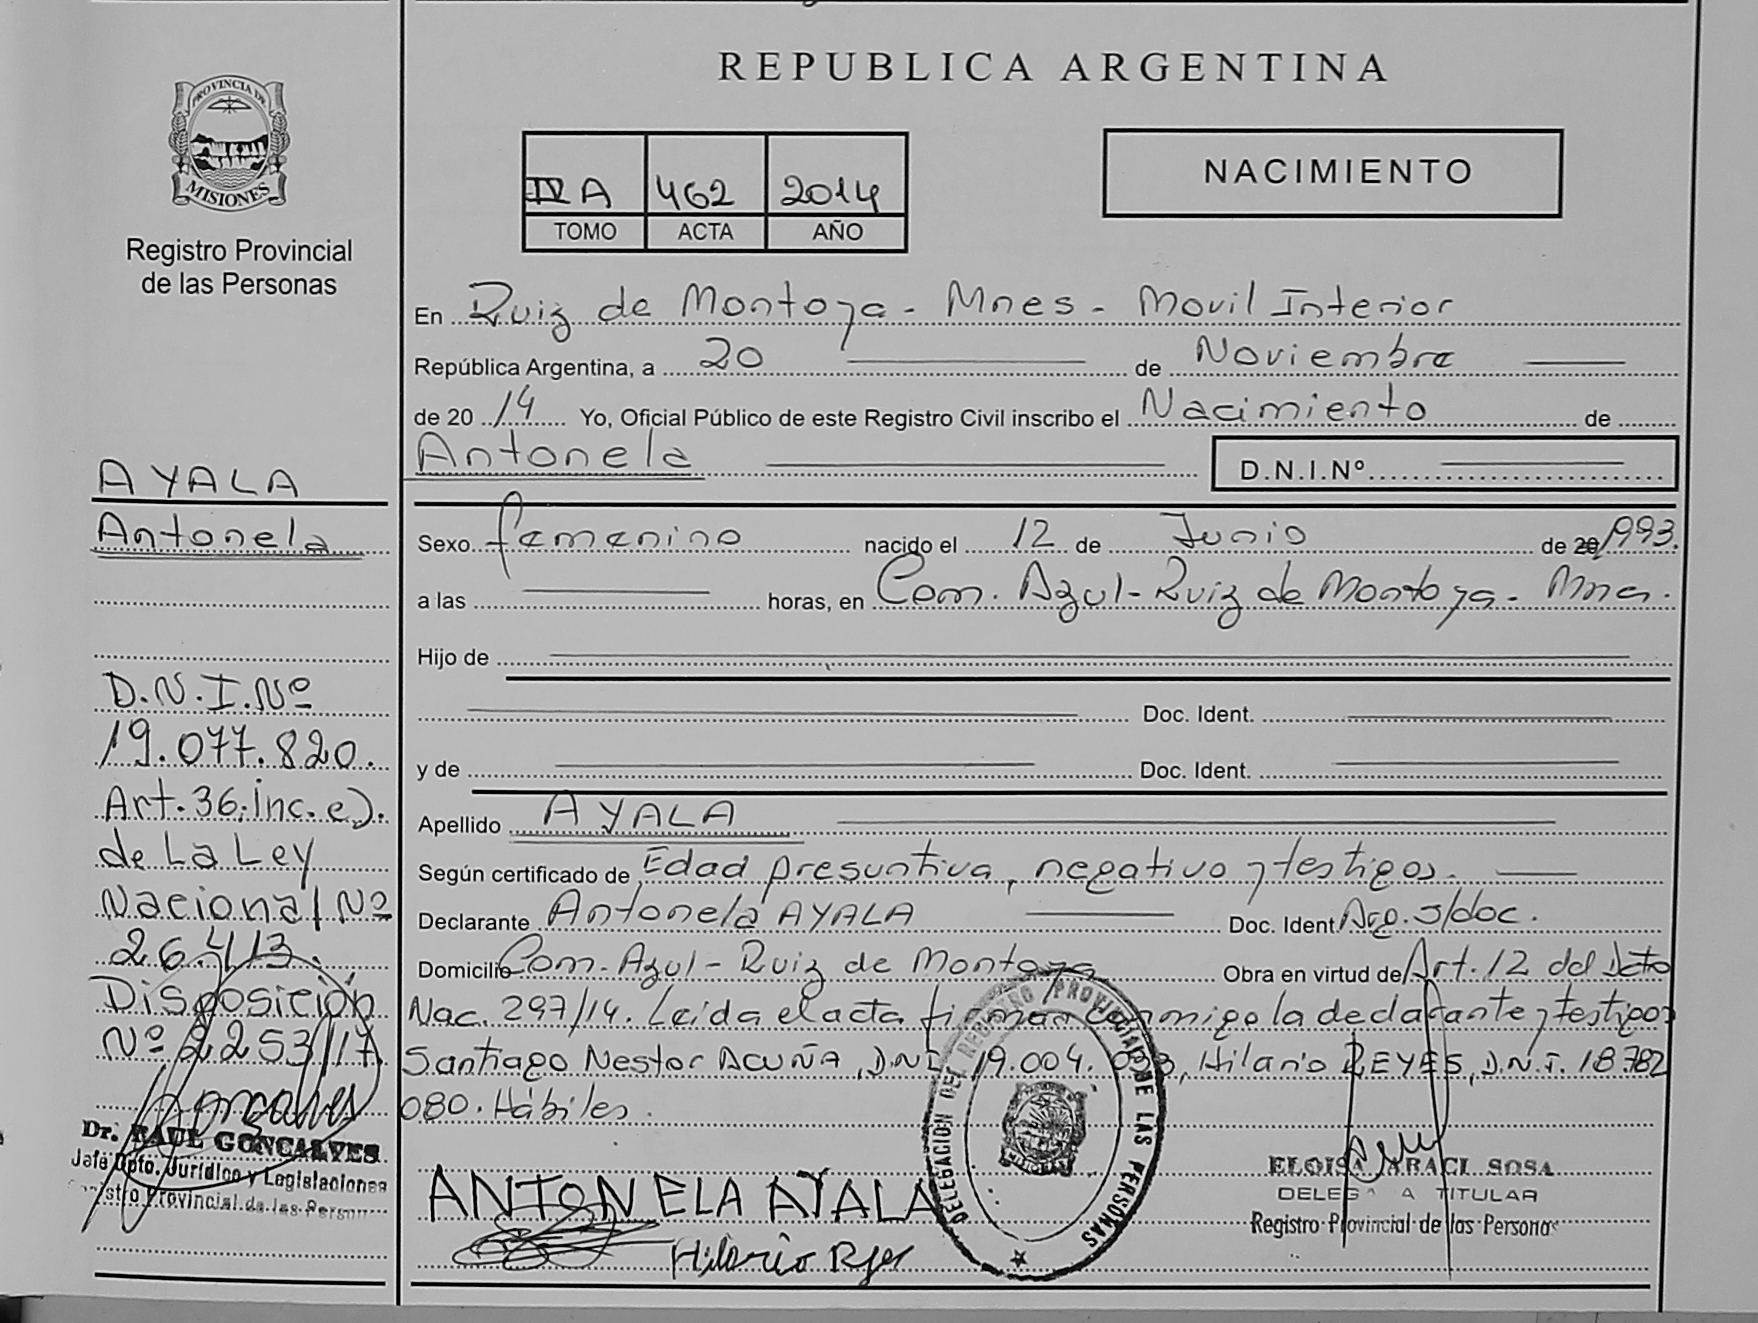 PROVINCIA DE
MISIONES
Registro Provincial
de las Personas
AYALA
Antonela
D.N.I. Nº
19.077.820.
Art. 36, inc. e).
de La Ley
Nacional Nº
26.413.
Disposición
Nº 2253/17
Goncalves
Dr. RAUL GONCALVES
Jefe Dpto. Jurídico y Legislaciones
Registro Provincial de las Personas
REPUBLICA ARGENTINA
IV A 462 2014
TOMO ACTA AÑO
NACIMIENTO
En Ruiz de Montoya - Mnes - Movil Interior
República Argentina, a 20 de Noviembre
de 20 14 Yo, Oficial Público de este Registro Civil inscribo el Nacimiento de
Antonela D.N.I. Nº
Sexo femenino nacido el 12 de Junio de 20 1993.
a las horas, en Com. Azul - Ruiz de Montoya - Mnes.
Hijo de
Doc. Ident.
y de Doc. Ident.
Apellido AYALA
Según certificado de Edad presuntiva, negativo y testigos.
Declarante Antonela AYALA Doc. Ident Arg. s/doc.
Domicilio Com. Azul - Ruiz de Montoya Obra en virtud de Art. 12 del Dcto
Nac. 297/14. Leída el acta firman conmigo la declarante y testigos
Santiago Nestor ACUÑA, D.N.I. 19.004. Hilario REYES, D.N.I. 18.782
080. Hábiles.
ANTONELA AYALA
Hilario
DELEGACION DEL REGISTRO PROVINCIAL DE LAS PERSONAS
ELOISA ARACI SOSA
DELEGADA TITULAR
Registro Provincial de las Personas